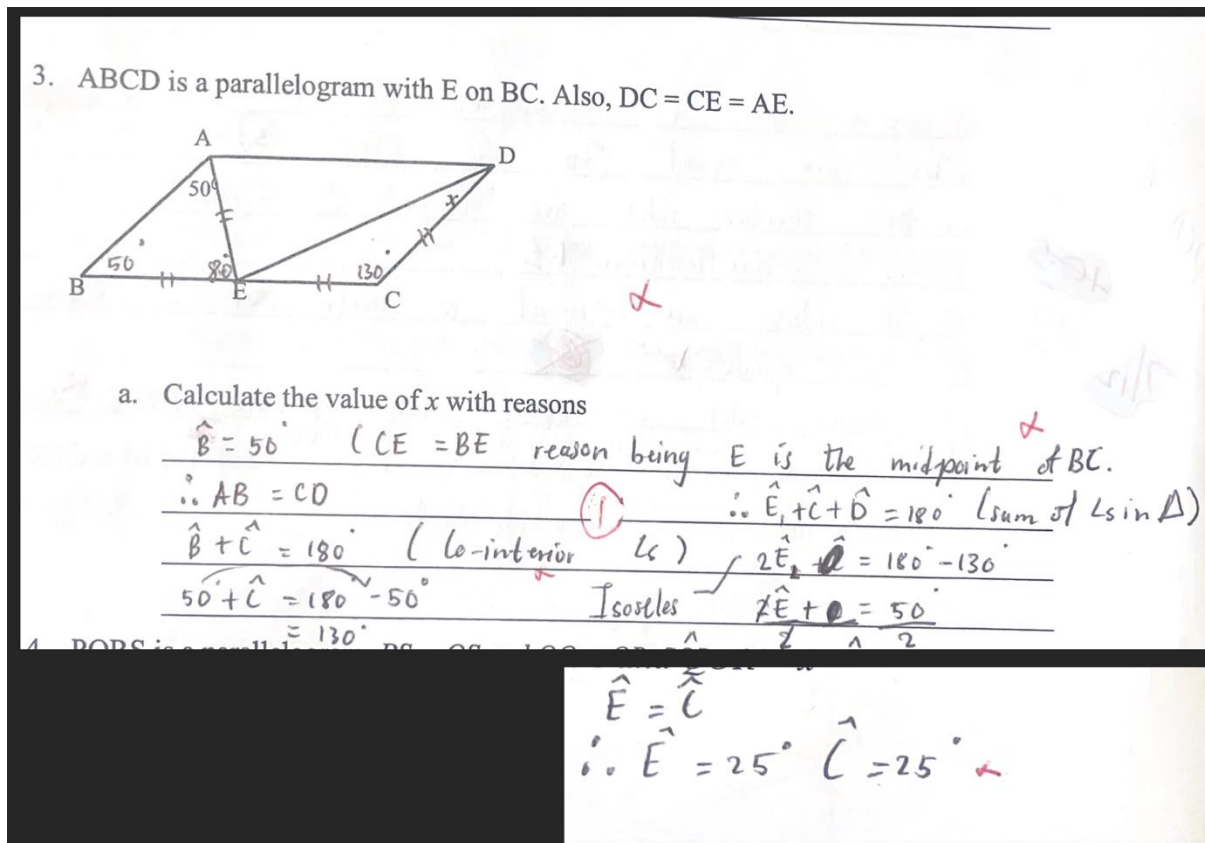 3. ABCD is a parallelogram with E on BC. Also, DC = CE = AE.
A
D
50°
x
50
80
130
B
E
C
a. Calculate the value of x with reasons
B̂ = 50° (CE = BE reason being E is the midpoint of BC.
∴ AB = CD
1
∴ Ê₁ + Ĉ + D̂ = 180° (sum of ∠s in Δ)
B̂ + Ĉ = 180° (Co-interior ∠s)
2Ê₂ = 180° - 130°
50° + Ĉ = 180° - 50°
Isoselles
2Ê + = 50°
= 130°
2 2
Ê = Ĉ
∴ Ê = 25° Ĉ = 25°